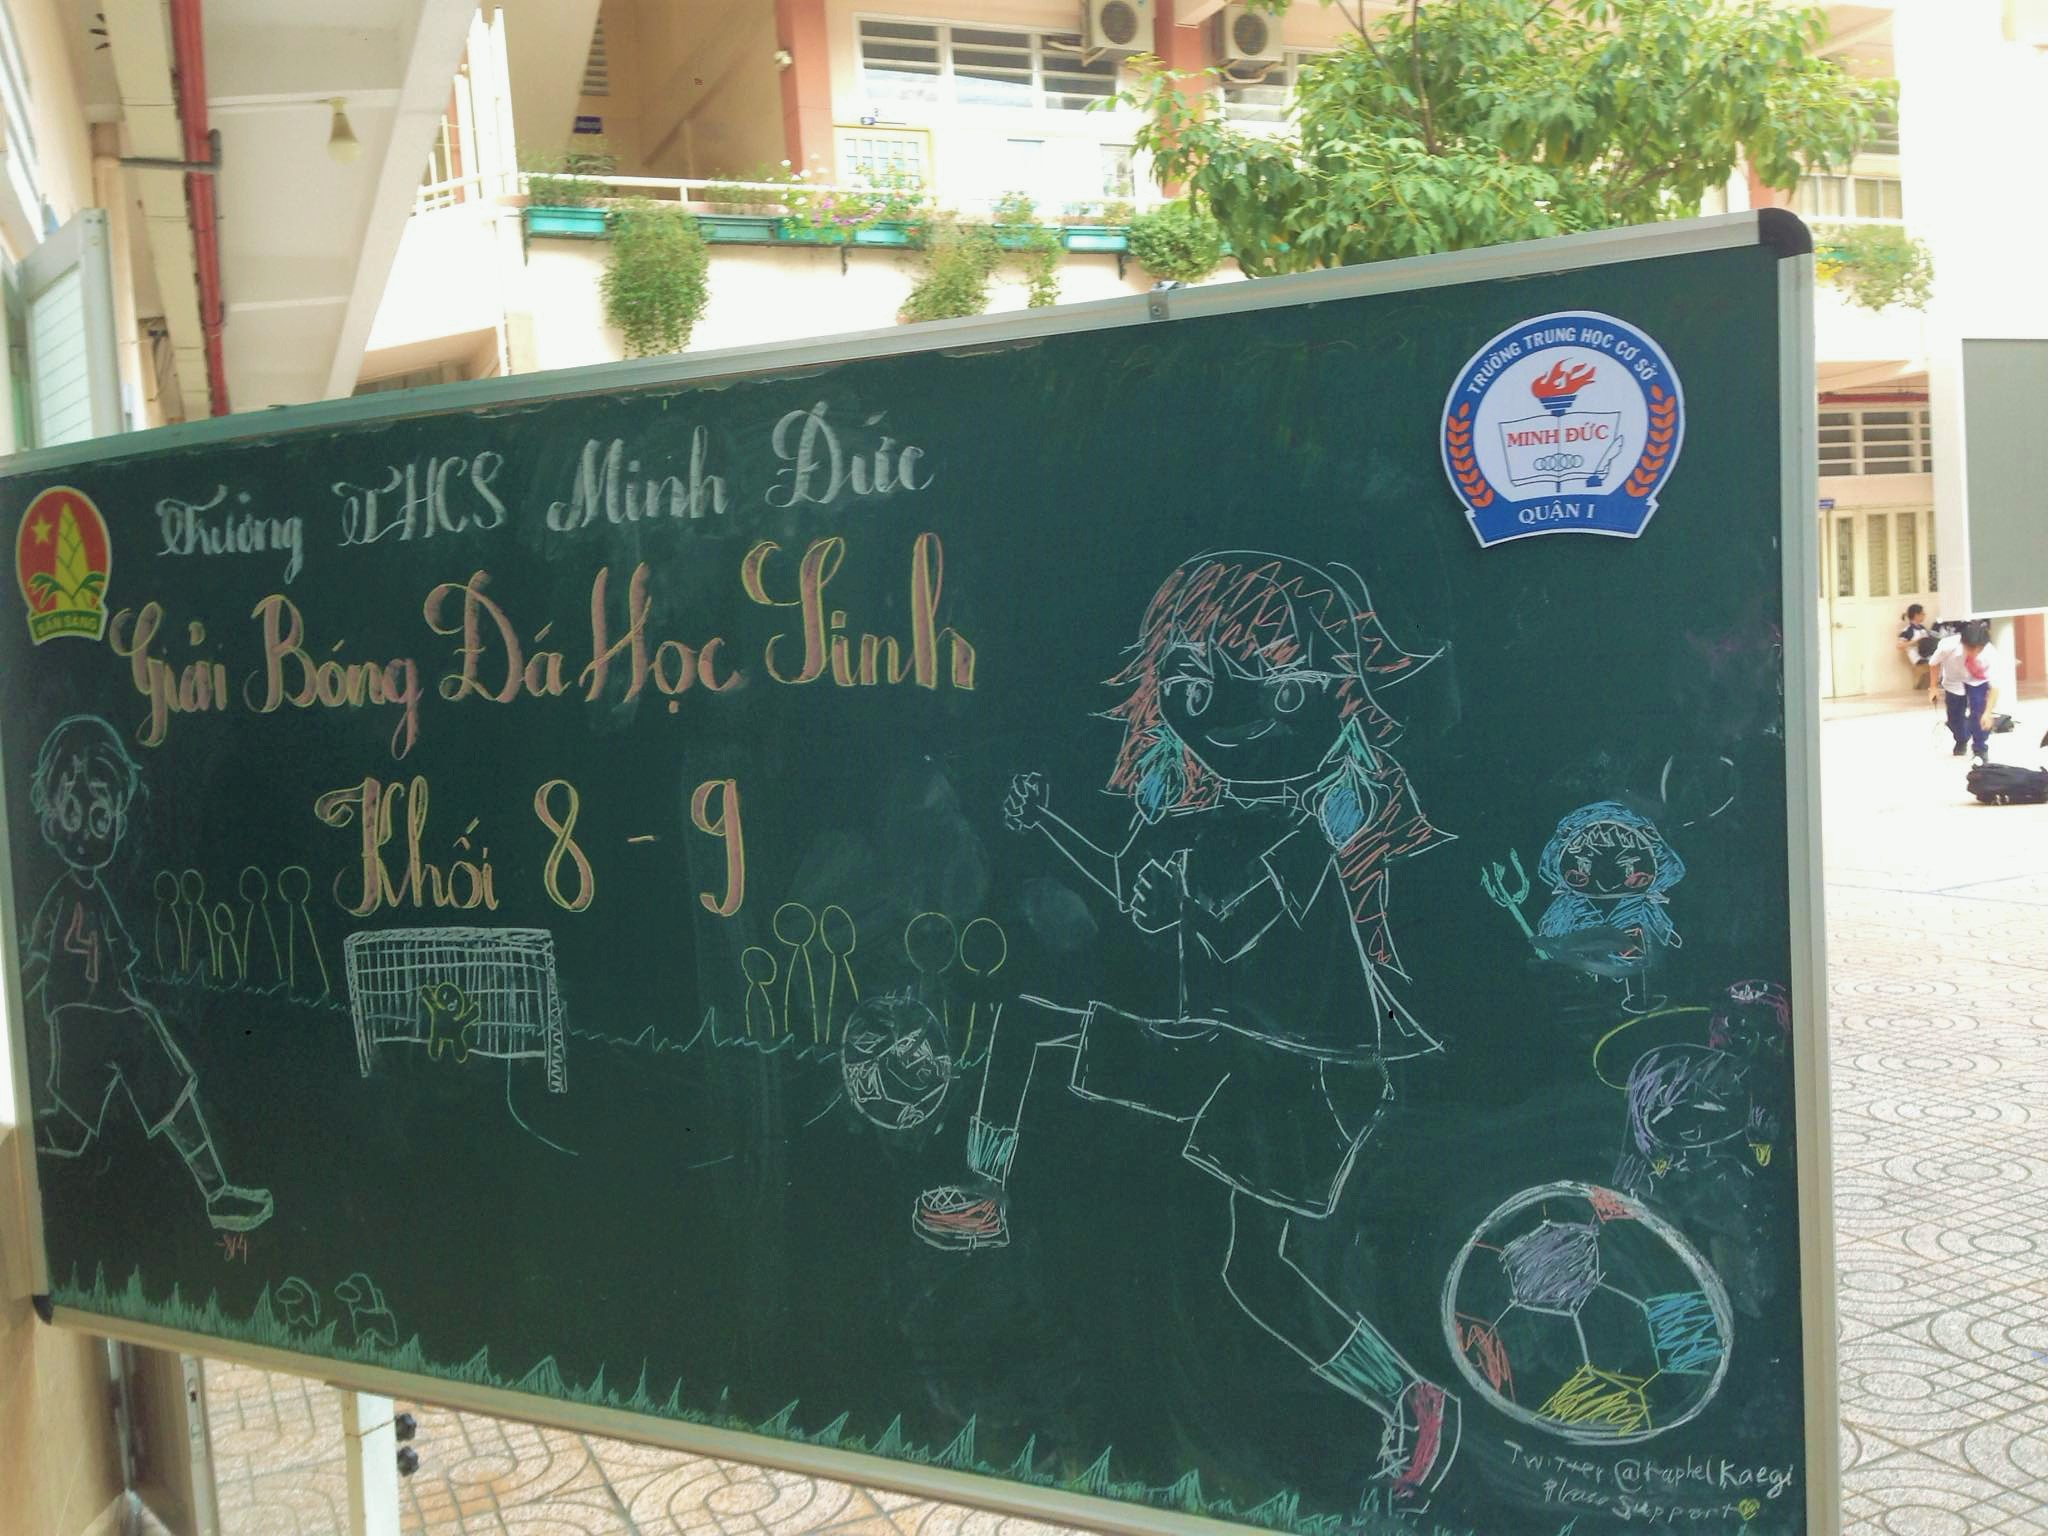 Trường THCS Minh Đức
Giải Bóng Đá Học Sinh
Khối 8 - 9
SẴN SÀNG
TRƯỜNG TRUNG HỌC CƠ SỞ
MINH ĐỨC
QUẬN I
4
Please Support